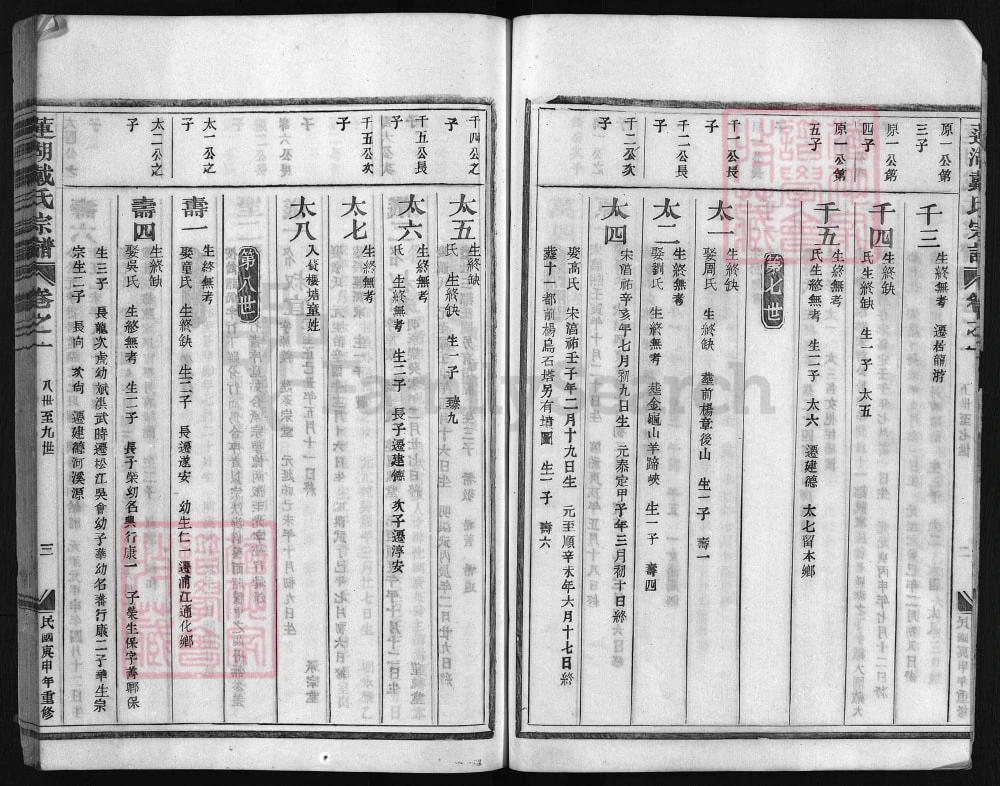 原一公第
三子
千三
生終無考 遷居龍游
原一公第
四子
千四
生終缺
氏生終缺 生一子 太五
原一公第
五子
千五
生終無考
氏生終無考 生二子 太六 遷建德 太七留本鄉
第七世
千一公長
子
太一
生終缺
娶周氏 生終缺 塟前楊章後山 生一子 壽一
千二公長
子
太二
生終無考
娶劉氏 生終無考 塟金龜山羊蹄峽 生一子 壽四
千二公次
子
太四
宋湻祐辛亥年七月初九日生 元泰定甲子年三月初十日終
娶高氏 宋湻祐壬子年二月十九日生 元至順辛未年六月十七日終
塟十一都前楊烏石塔另有墳圖 生一子 壽六
民國庚申年重修
千四公之
子
太五
生終缺
氏 生終缺 生一子 臻九
千五公長
子
太六
生終無考
氏 生終無考 生二子 長子遷建德 次子遷淳安
千五公次
子
太七
生終無考
太八
入贅樓塘童姓
第八世
太一公之
子
壽一
生終無考
娶童氏 生終缺 生二子 長遷遂安 幼生仁一遷浦江通化鄉
太二公之
子
壽四
生終缺
娶吳氏 生終無考 生三子 長子榮幼名典行康一 子榮生保字善鄆保
生三子 長龍次虎幼斌洪武時遷松江吳會幼子華幼名蕃行康二子華生宗
宗生二子 長尚 次尚 遷建德河溪源
蓮湖戴氏宗譜
卷之一
八世至九世
三
民國庚申年重修